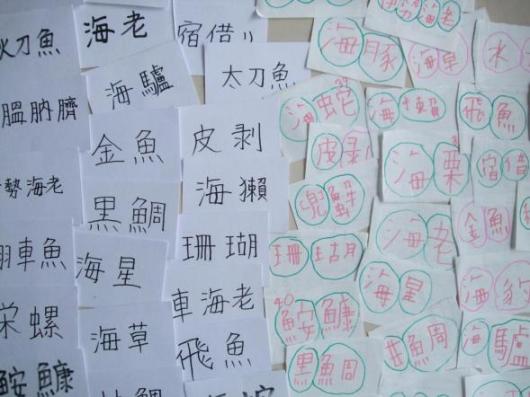 刀魚
膃肭臍
勢海老
車魚
栄螺
鮟鱇
海老
海驢
金魚
黒鯛
海星
海草
鯛
宿借り
太刀魚
皮剥
海獺
珊瑚
車海老
飛魚
海豚
海蛇
皮剥
兜蟹
珊瑚
40
鮟鱇
黒鯛
勢海老
海獺
海栗
海老
海星
鯛
海草
水
飛魚
宿借
金魚
海豹
海驢